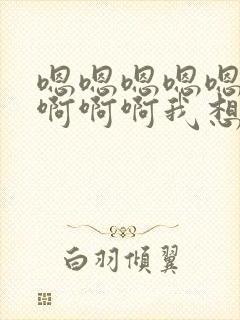 嗯嗯嗯嗯嗯
啊啊啊我想
白羽倾翼